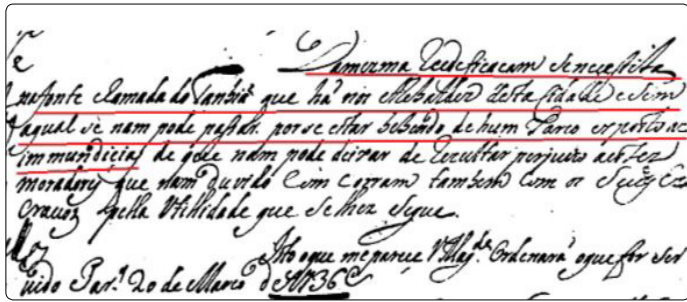 Da mesma Reedeficacam se necessita
na fonte chamada do Tanbiá que há nos Arebaldes desta Cidade e sem
a qual se nam pode pasar. por se estar bebendo de hum Parco exposto ac
immundicias de que nam pode deixar de rezultar perjuizo aestez
moradorez que nam duvido Com corram tambem com os Seus Es
cravos pella Utilidade que Se lhez Segue.
Isto o que me parece V Magde. Ordenará o que for Ser
vido Par.ª 20 de Março de 1736